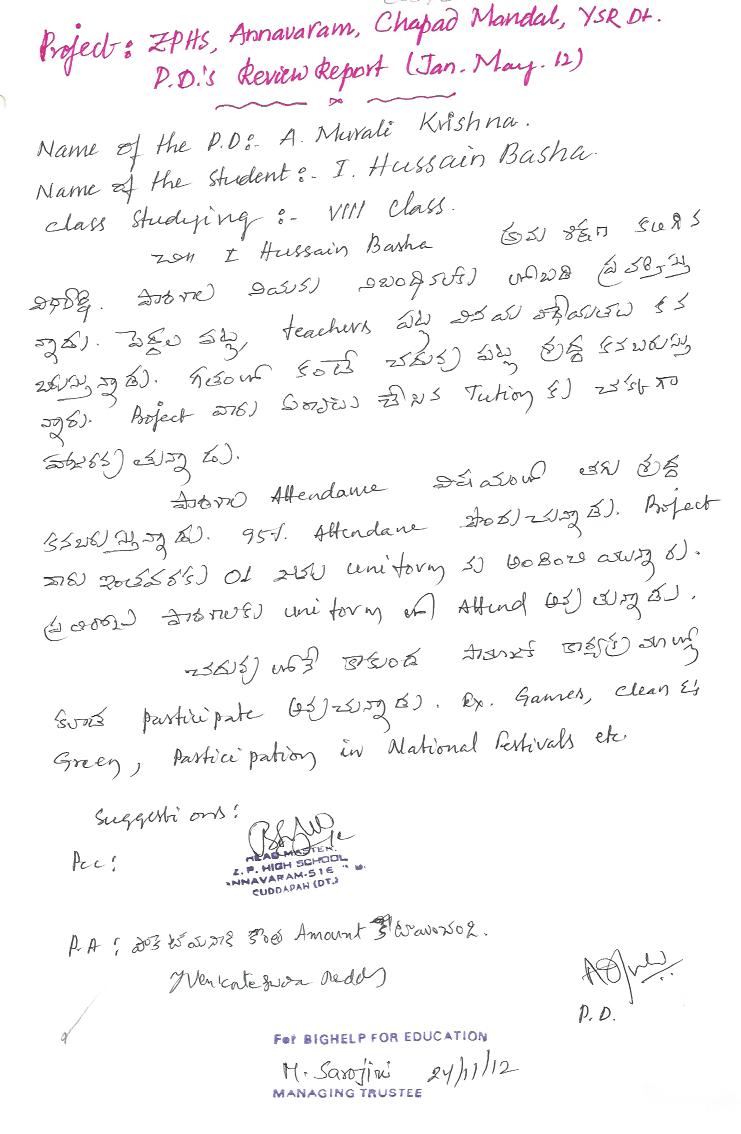 Project: ZPHS, Annavaram, Chapad Mandal, YSR Dt.
P.D.'s Review Report (Jan. May. 12)
Name of the P.D:- A. Murali Krishna.
Name of the Student:- I. Hussain Basha.
Class Studying :- VIII Class.
I Hussain Basha క్రమ శిక్షణ కలిగిన
విద్యార్థి. పాఠశాల నియమ నిబంధనలకు లోబడి ప్రవర్తిస్తు
న్నాడు. పెద్దల పట్ల, teachers పట్ల వినయ విధేయతలు కన
బరుస్తున్నాడు. గతంలో కంటే చదువు పట్ల శ్రద్ధ కనబరుస్తు
న్నాడు. Project వారు ఏర్పాటు చేసిన Tution కు చక్కగా
హాజరవుతున్నాడు.
పాఠశాల Attendance విషయంలో తగు శ్రద్ధ
కనబరుస్తున్నాడు. 95% Attendane పొందుచున్నాడు. Project
వారు ఇంతవరకు 01 జత uniform ను అందించియున్నారు.
ప్రతిరోజు పాఠశాలకు uniform తో Attend అవుతున్నాడు.
చదువులోనే కాకుండ సామాజిక కార్యక్రమాల్లో
కూడ participate అవుచున్నాడు. Ex. Games, Clean &
Green, Participation in National Festivals etc.
Suggestions:
Pcc:
HEAD MASTER.
Z. P. HIGH SCHOOL
ANNAVARAM-516
CUDDAPAH (DT.)
P.A : కొంత Amount
YVenkateswara Reddy
P.D.
For BIGHELP FOR EDUCATION
M. Sarojini 24/11/12
MANAGING TRUSTEE